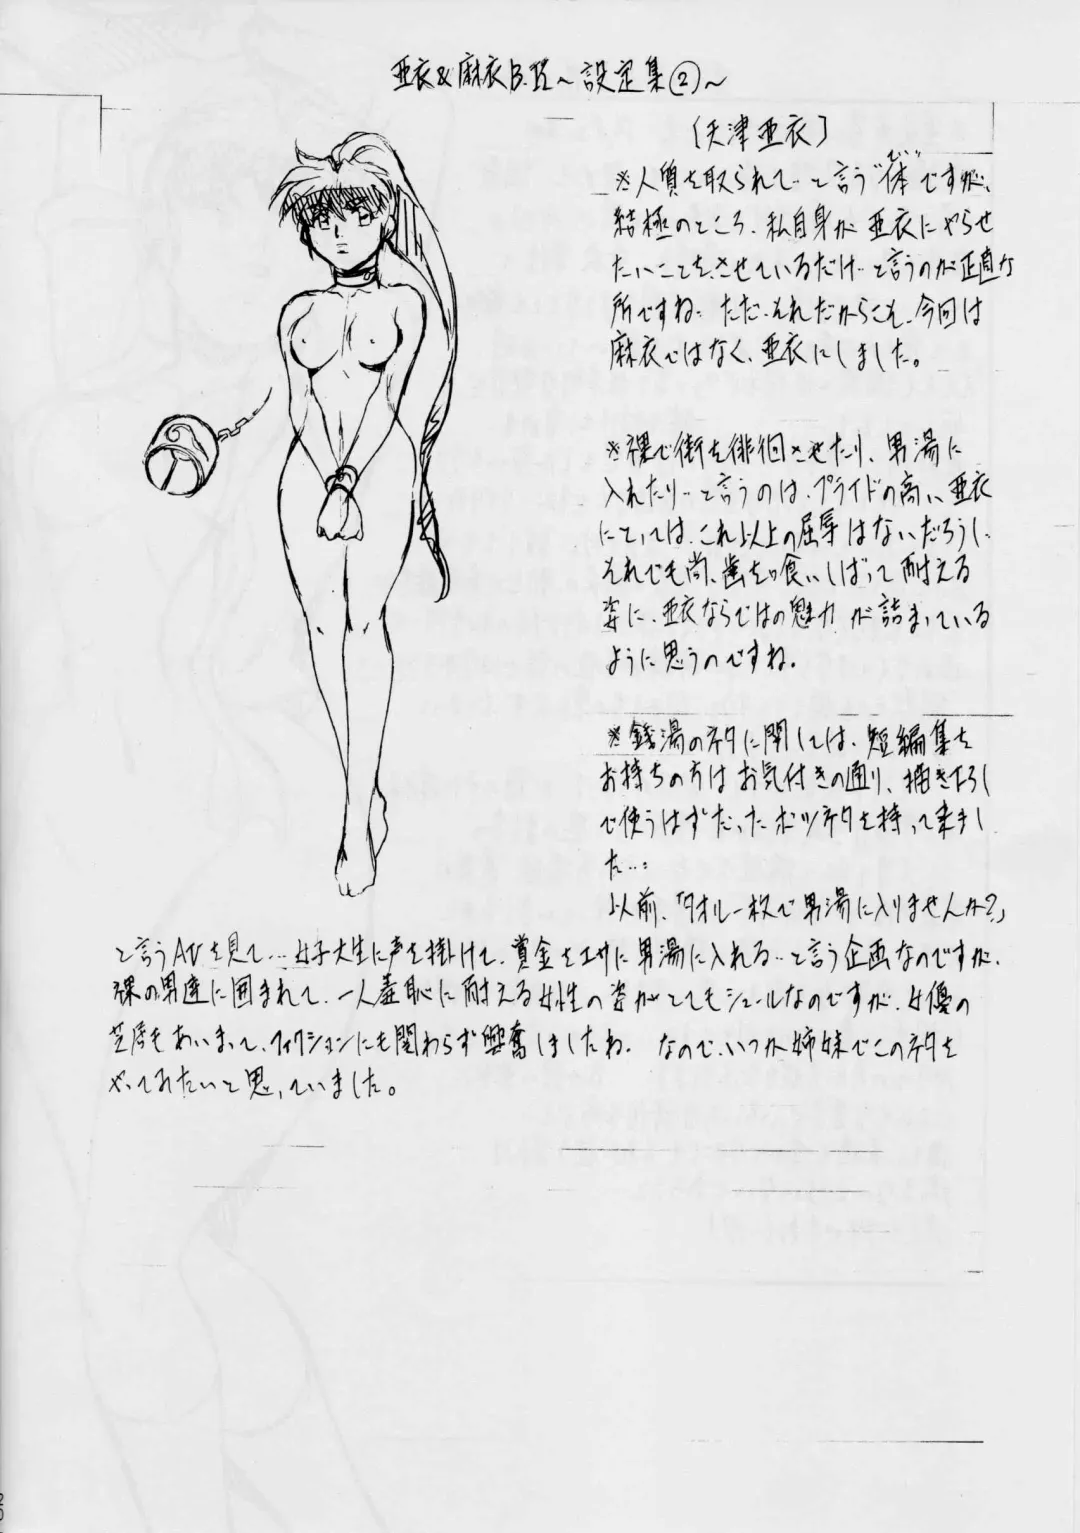 亜衣&麻衣B.R〜設定集②〜
〔天津亜衣〕
※人質を取られて…と言う“体”ですが、
てい
結極のところ、私自身が亜衣にやらせ
たいことを、させているだけ…と言うのが正直な
所ですね。ただ、それだからこそ、今回は
麻衣ではなく、亜衣にしました。
※裸で街を徘徊させたり、男湯に
入れたり…と言うのは、プライドの高い亜衣
にとっては、これ以上の屈辱はないだろうし、
それでも尚、歯を喰いしばって耐える
姿に、亜衣ならではの魅力が詰まっている
ように思うのですね。
※銭湯のネタに関しては、短編集を
お持ちの方はお気付きの通り、描き下ろし
で使うはずだったボツネタを持って来まし
た…
以前、「タオル一枚で男湯に入りませんか?」
と言うAVを見て…女子大生に声を掛けて、賞金をエサに男湯に入れる…と言う企画なのですが、
裸の男達に囲まれて、一人羞恥に耐える女性の姿がとてもシュールなのですが、女優の
芝居もあいまって、フィクションにも関わらず興奮しましたね。なので、いつか姉妹でこのネタを
やってみたいと思っていました。